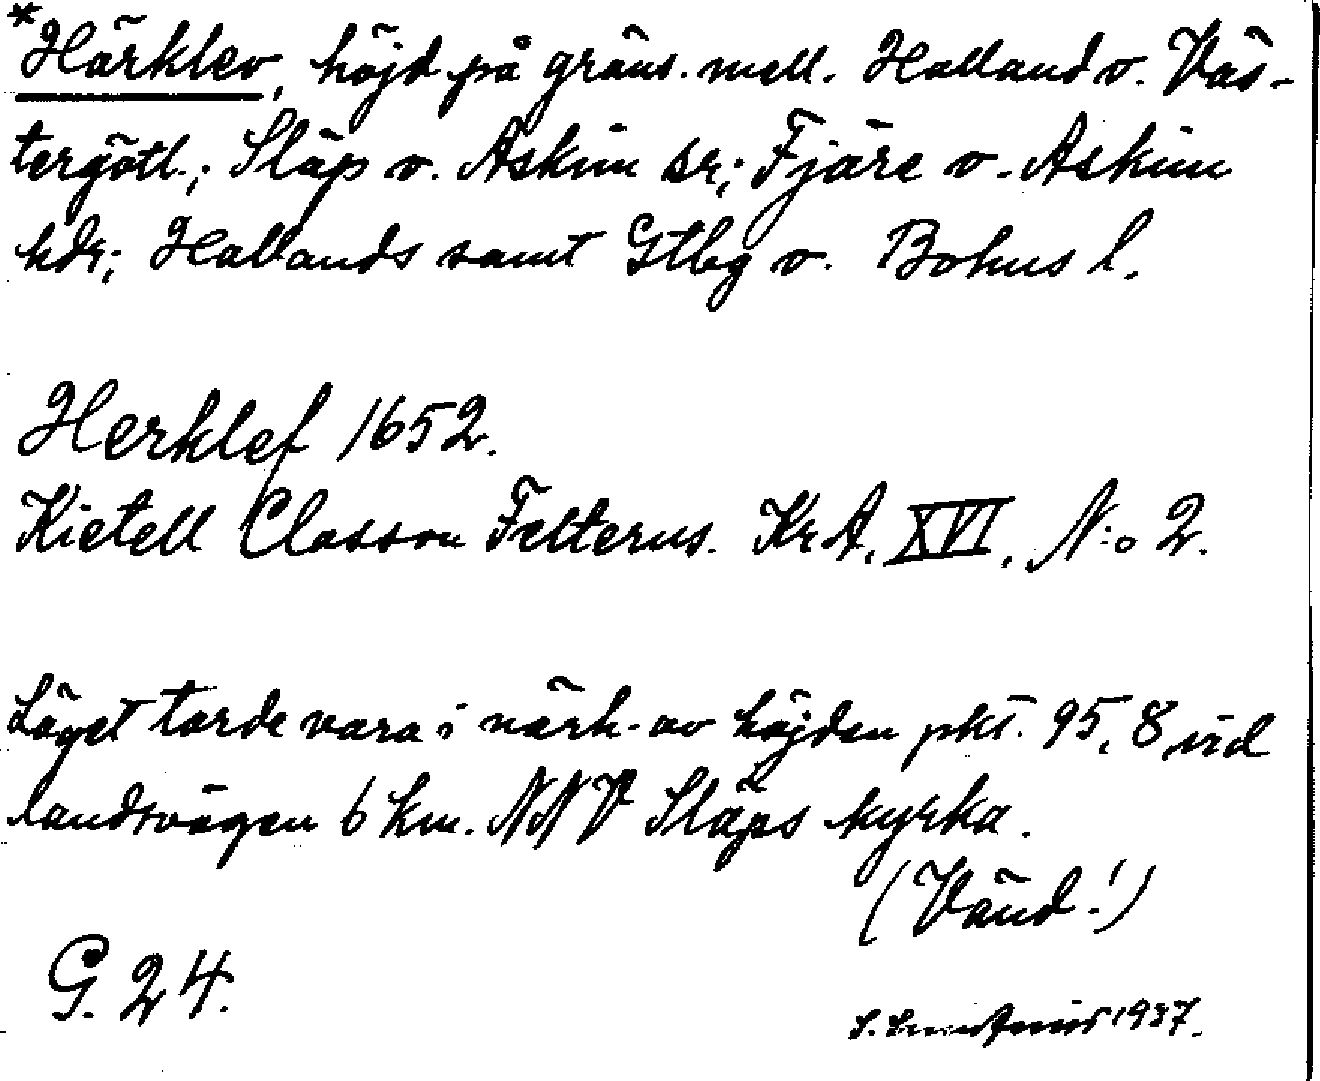 *Härklev, höjd på gräns. mell. Halland o. Väs-
tergötl.; Släp o. Askim sr; Fjäre o. Askim
hdr; Hallands samt Gtbg o. Bohus l.
Herklef 1652.
Kietell Classon Felterus. KrA. XVI. N:o 2.
Läget torde vara i närh. av höjden pkt. 95,8 vid
landsvägen 6 km. NNV Släps kyrka.
(Vänd!)
G. 24.
1937.